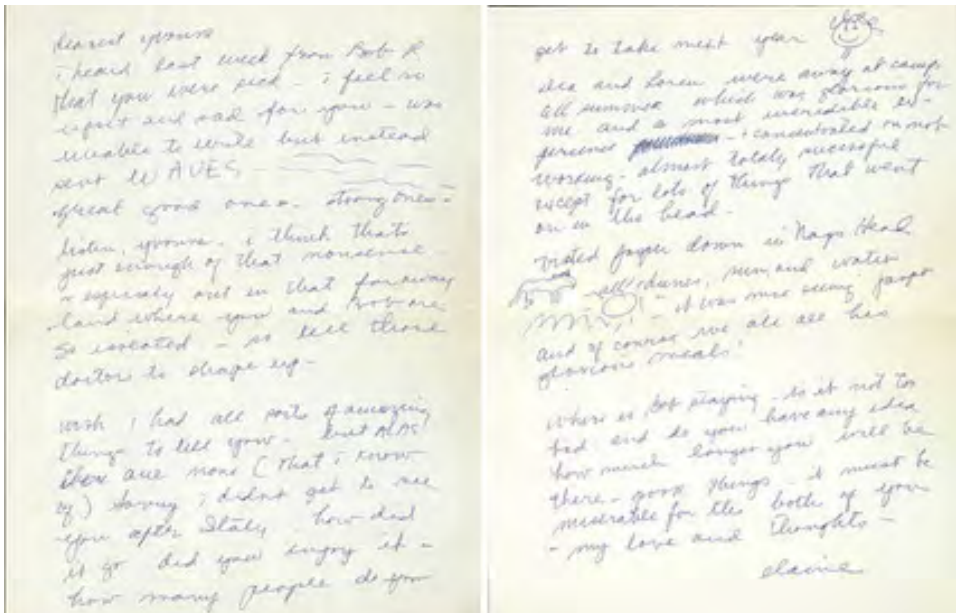 dearest yvonne
i heard last week from Bob R
that you were sick - i feel so
upset and sad for you - was
unable to write but instead
sent WAVES -
great good ones - strong ones -
listen, yvonne - i think that's
just enough of that nonsense -
especially out in that far away
land where you and Bob are
so isolated - so tell those
doctors to shape up -
wish i had all sorts of amazing
things to tell you - but ALAS!
there are none (that i know
of) Sorry i didn't get to see
you after Italy - how did
it go did you enjoy it -
how many people do you
get to take next year
and Loren were away at camp
all summer which was glorious for
me and a most incredible ex-
perience - i concentrated on not
working - almost totally successful
except for lots of things that went
on in the head -
visited down in Nags Head
- dunes, sun, and water
- it was nice seeing
and of course we ate all his
glorious meals!
where is Bob staying - is it not too
bad and do you have any idea
how much longer you will be
there - good things - it must be
miserable for the both of you
- my love and thoughts -
elaine